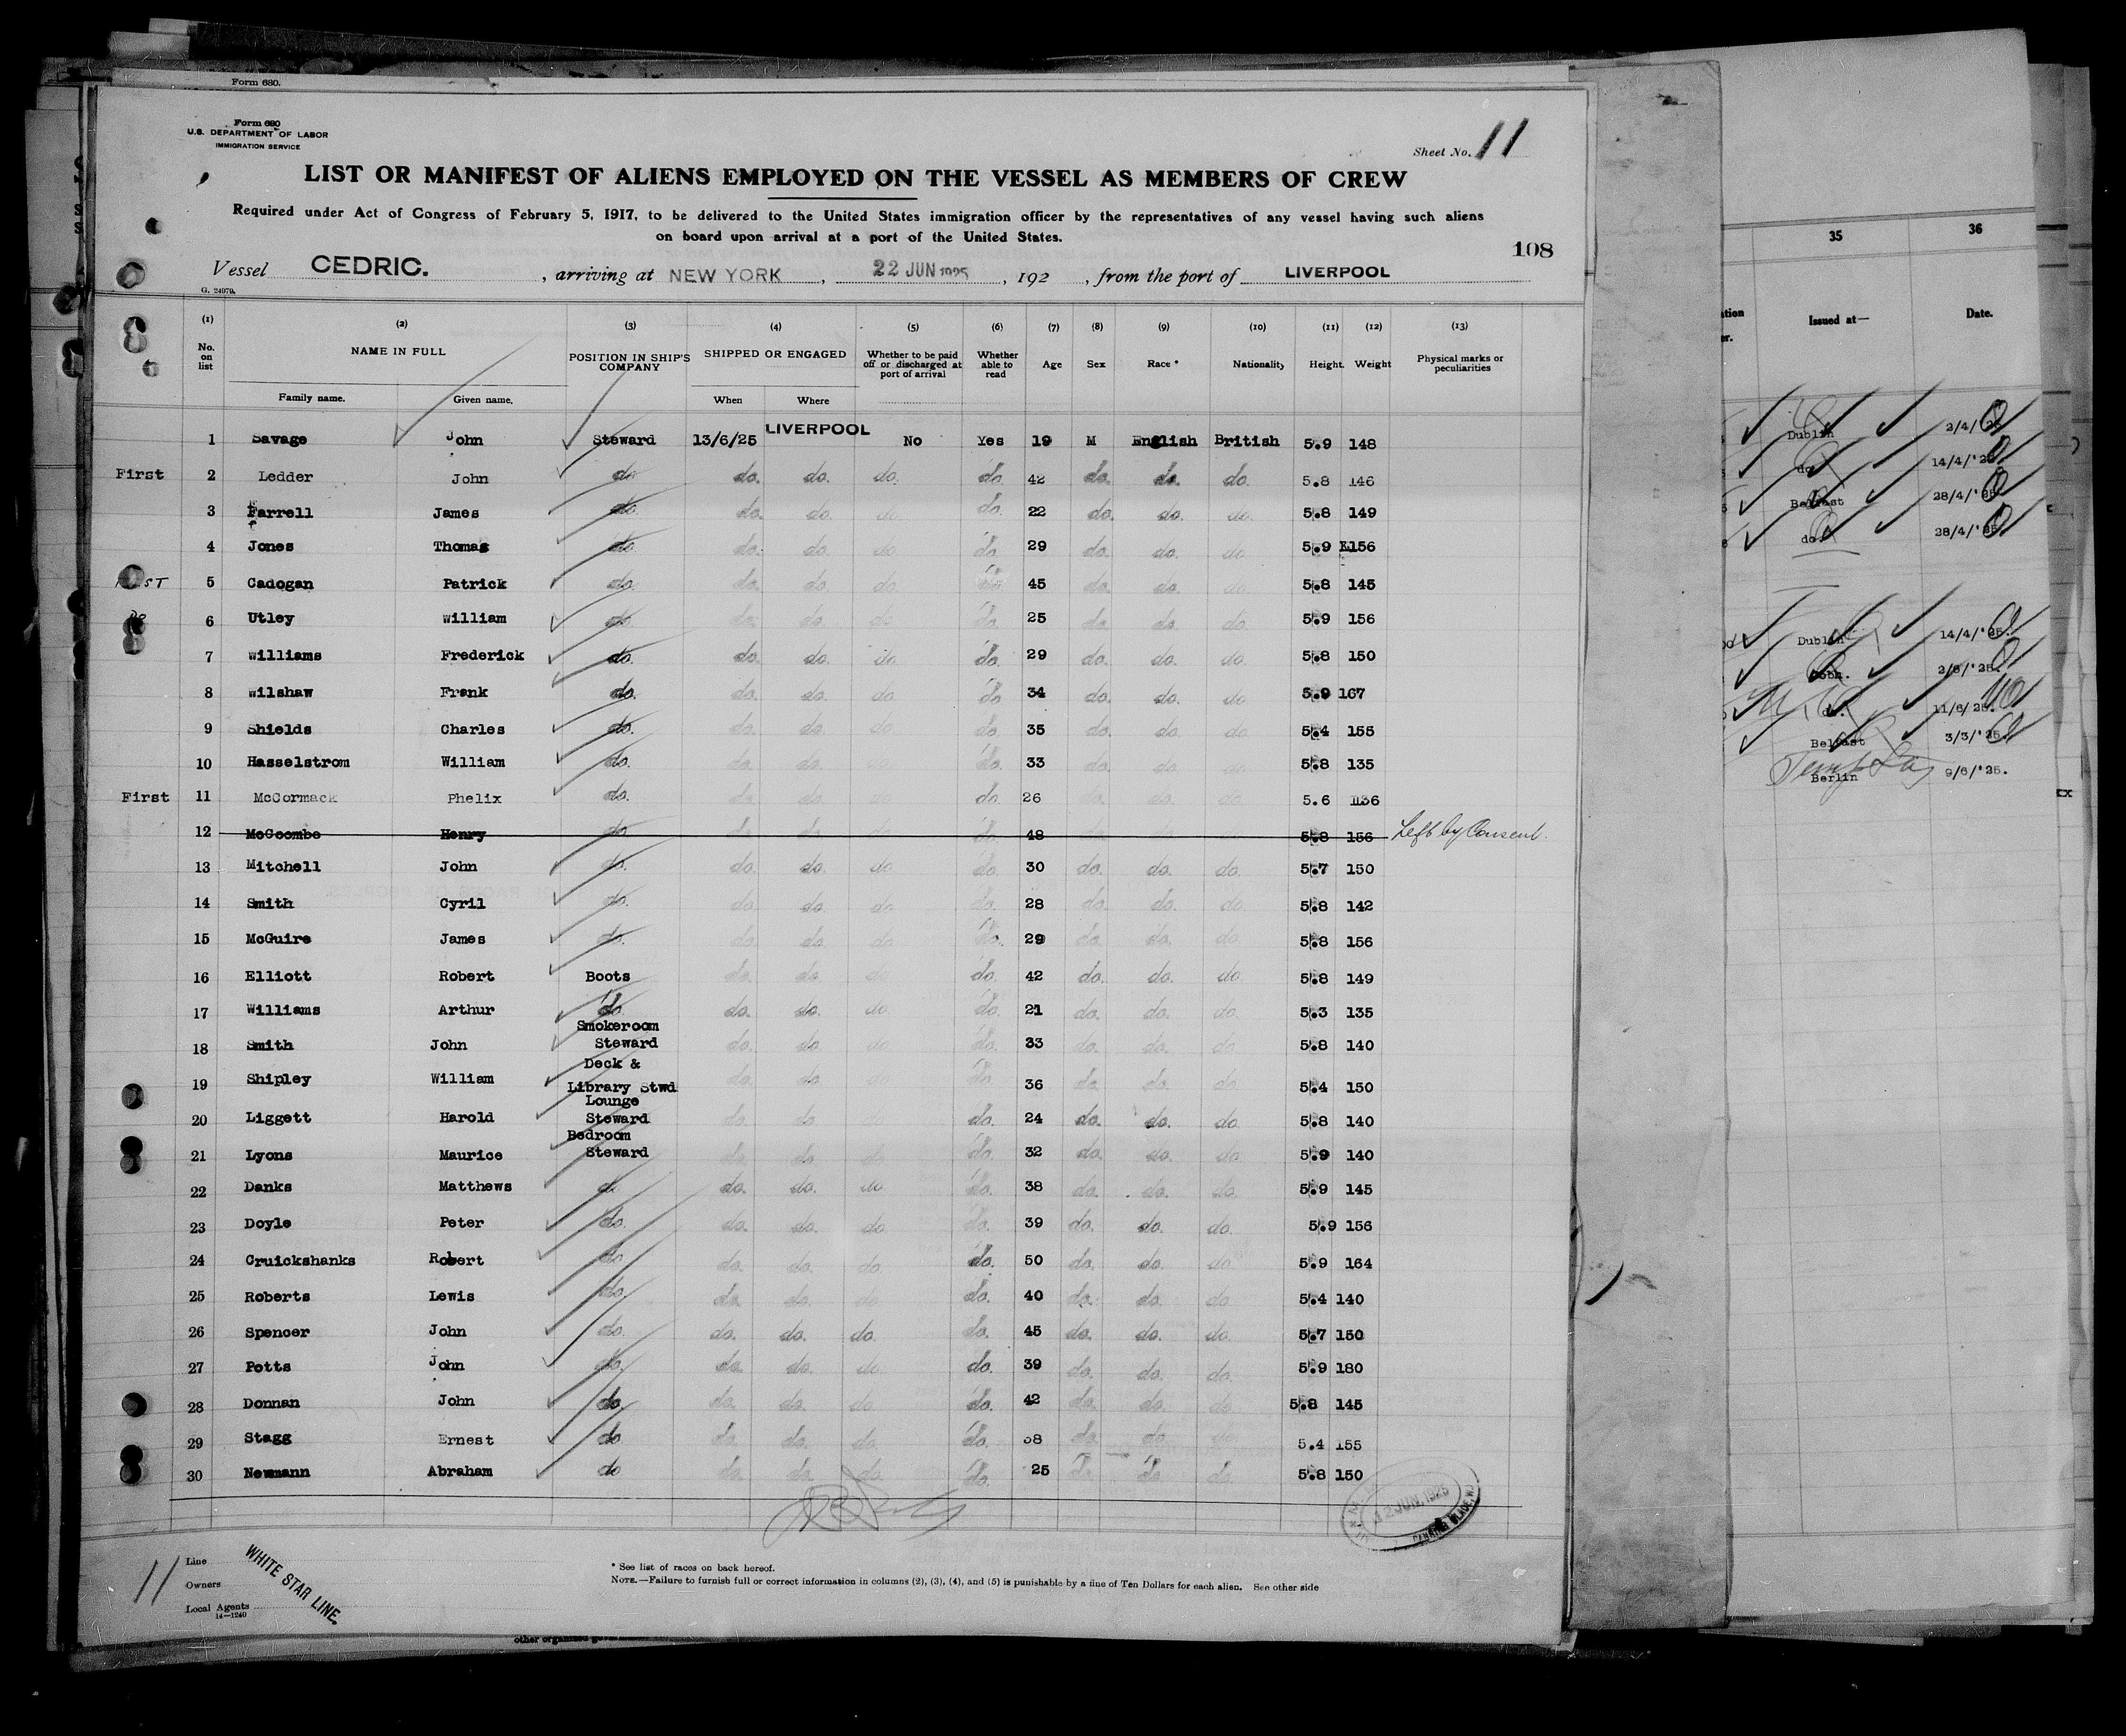 Form 680.
Form 680
U.S. DEPARTMENT OF LABOR
IMMIGRATION SERVICE
Sheet No. 11
LIST OR MANIFEST OF ALIENS EMPLOYED ON THE VESSEL AS MEMBERS OF CREW
Required under Act of Congress of February 5, 1917, to be delivered to the United States immigration officer by the representatives of any vessel having such aliens
on board upon arrival at a port of the United States.
108
Vessel CEDRIC. , arriving at NEW YORK , 22 JUN 1925 , 192 , from the port of LIVERPOOL
G. 24079.
(1) (2) (3) (4) (5) (6) (7) (8) (9) (10) (11) (12) (13)
No. on list NAME IN FULL POSITION IN SHIP'S COMPANY SHIPPED OR ENGAGED Whether to be paid off or discharged at port of arrival Whether able to read Age Sex Race * Nationality Height. Weight Physical marks or peculiarities
Family name. Given name. When Where
1 Savage John Steward 13/6/25 LIVERPOOL No Yes 19 M English British 5.9 148
First 2 Ledder John do. do. do. do. do. 42 do. do. do. 5.8 146
3 Farrell James do. do. do. do. do. 22 do. do. do. 5.8 149
4 Jones Thomas do. do. do. do. do. 29 do. do. do. 5.9 156
5 Cadogan Patrick do. do. do. do. do. 45 do. do. do. 5.8 145
6 Utley William do. do. do. do. do. 25 do. do. do. 5.9 156
7 Williams Frederick do. do. do. do. do. 29 do. do. do. 5.8 150
8 Wilshaw Frank do. do. do. do. do. 34 do. do. do. 5.9 167
9 Shields Charles do. do. do. do. do. 35 do. do. do. 5.4 155
10 Hasselstrom William do. do. do. do. do. 33 do. do. do. 5.8 135
First 11 McCormack Phelix do. do. do. do. do. 26 do. do. do. 5.6 136
12 McCoombe Henry do. do. do. do. do. 48 5.8 156 Left by Consent.
13 Mitchell John do. do. do. do. do. 30 do. do. do. 5.7 150
14 Smith Cyril do. do. do. do. do. 28 do. do. do. 5.8 142
15 McGuire James do. do. do. do. do. 29 do. do. do. 5.8 156
16 Elliott Robert Boots do. do. do. do. 42 do. do. do. 5.8 149
17 Williams Arthur do. do. do. do. do. 21 do. do. do. 5.3 135
18 Smith John Smokeroom Steward do. do. do. do. 33 do. do. do. 5.8 140
19 Shipley William Deck & Library Stwd do. do. do. do. 36 do. do. do. 5.4 150
20 Liggett Harold Lounge Steward do. do. do. do. 24 do. do. do. 5.8 140
21 Lyons Maurice Bedroom Steward do. do. do. do. 32 do. do. do. 5.9 140
22 Danks Matthews do. do. do. do. do. 38 do. do. do. 5.9 145
23 Doyle Peter do. do. do. do. do. 39 do. do. do. 5.9 156
24 Cruickshanks Robert do. do. do. do. do. 50 do. do. do. 5.9 164
25 Roberts Lewis do. do. do. do. do. 40 do. do. do. 5.4 140
26 Spencer John do. do. do. do. do. 45 do. do. do. 5.7 150
27 Potts John do. do. do. do. do. 39 do. do. do. 5.9 180
28 Donnan John do. do. do. do. do. 42 do. do. do. 5.8 145
29 Stagg Ernest do. do. do. do. do. 38 do. do. do. 5.4 155
30 Newmann Abraham do do. do. do. do. 25 do. do. do. 5.8 150
JUN. 1925
11
Line
Owners
Local Agents
14—1240
WHITE STAR LINE.
* See list of races on back hereof.
NOTE.—Failure to furnish full or correct information in columns (2), (3), (4), and (5) is punishable by a fine of Ten Dollars for each alien. See other side
35 36
Issued at— Date.
Dublin 2/4/
do. 14/4/'25
Belfast 28/4/'25
do. 28/4/'25
Dublin 14/4/'25.
Cobh. '25.
do. 11/6/25.
Belfast 3/3/'25.
Berlin 9/6/'25.